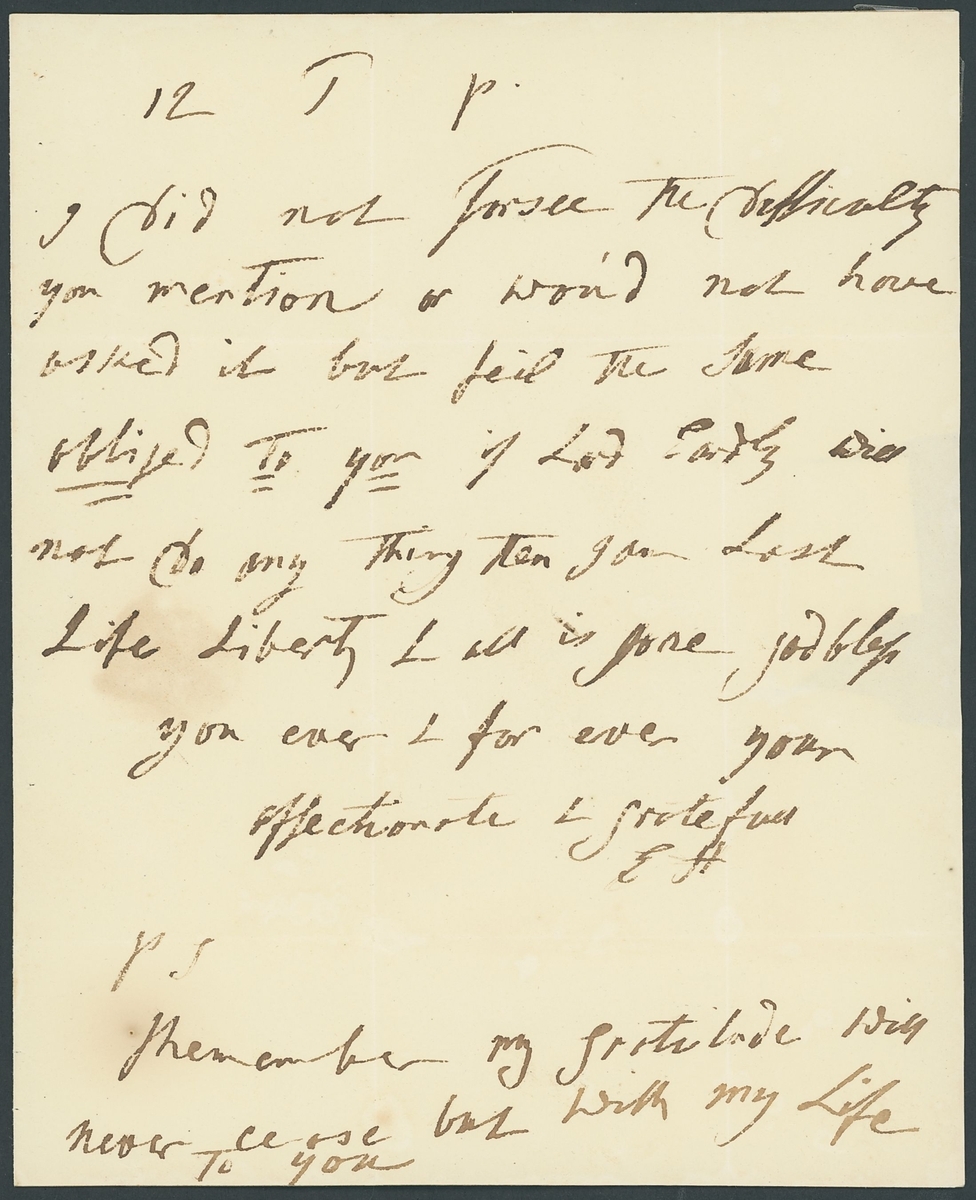 12 T P.
I Did not Forsee the Difficulty
you mention or wou'd not have
asked it but feil the same
obliged To you if Lord Eardly will
not Do any thing then I am Lost
Life Liberty & all is gone god bless
you ever & for ever your
affectionate & gratefull
E H
P S
Remember my gratitude will
never cease but with my Life
To you